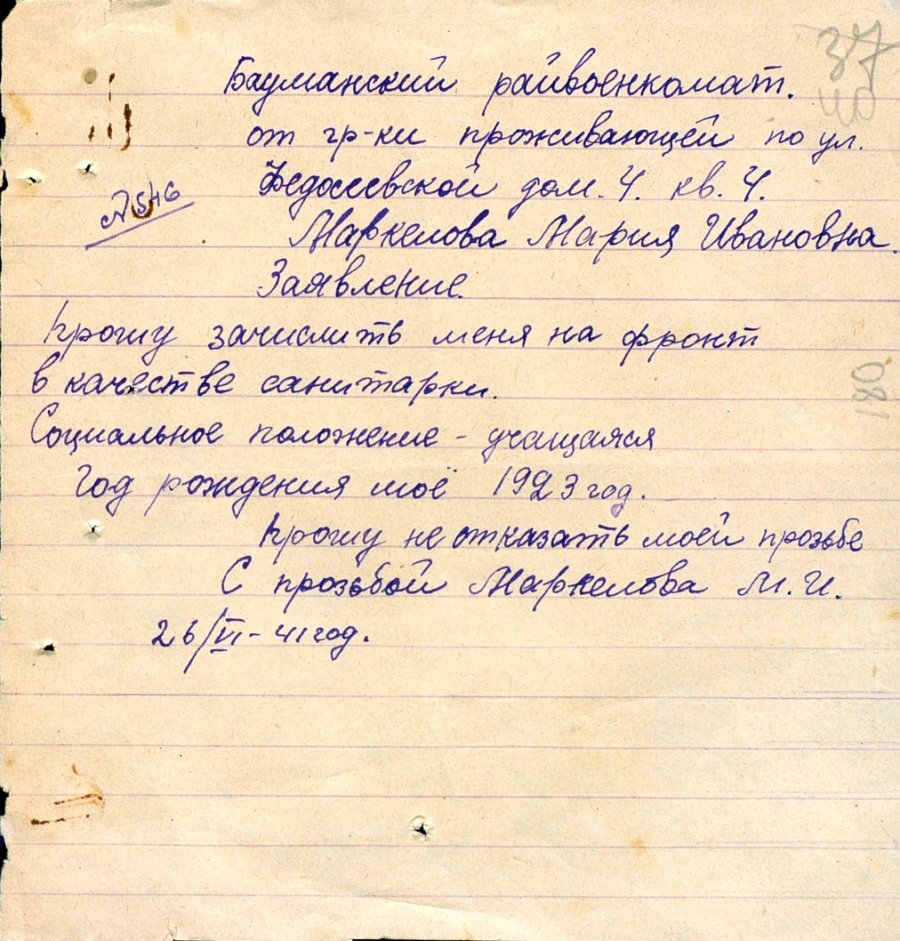 37
40
Бауманский райвоенкомат.
от гр-ки проживающей по ул.
Федосеевской дом. 4. кв. 4.
№ 546
Маркелова Мария Ивановна.
Заявление.
Прошу зачислить меня на фронт
в качестве санитарки.
180
Социальное положение - учащаяся
Год рождения моё 1923 год.
Прошу не отказать моей прозьбе
С прозьбой Маркелова М. И.
26/VI - 41 год.